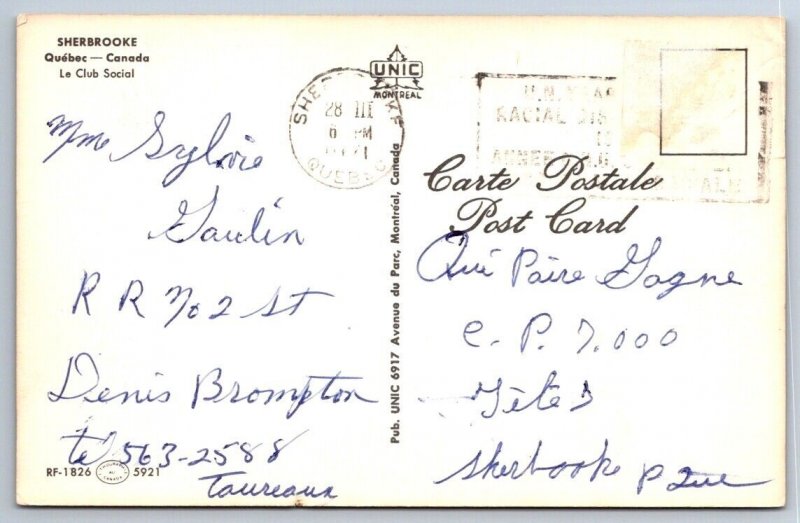 SHERBROOKE
Québec — Canada
Le Club Social
UNIC
MONTREAL
SHERBROOKE
28 III
6 PM
QUEBEC
U.N. YEAR
RACIAL
Carte Postale
Post Card
Pub. UNIC 6917 Avenue du Parc, Montréal, Canada
Mme Sylvie
Gaulin
R R No 2 St
Denis Brompton
tel 563-2588
Taureaux
RF-1826 5921
Qui Paire Gagne
C. P. 7.000
Sherbrooke P Que